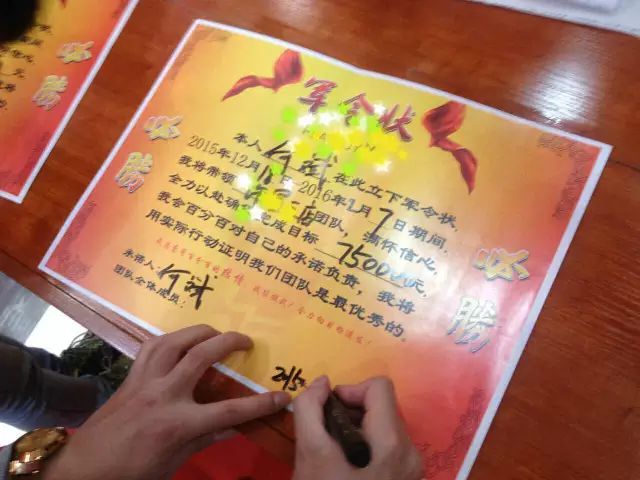 军令状
本人何斌在此立下军令状.
2015年12月1 2016年1月7日期间,
我将带领 店团队,满怀信心,
全力以赴确 完成目标 7500 元,
我会百分百对自己的承诺负责,我将
用实际行动证明我们团队是最优秀的。
承诺人:何斌
团队全体成员:
2015
必
胜
必
胜
必
胜